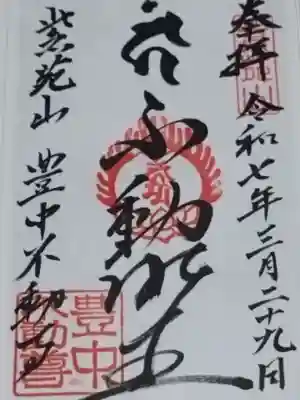 奉拝
令和七年三月二十九日
不動明王
紫苑山 豊中不動寺
豊中
不動寺